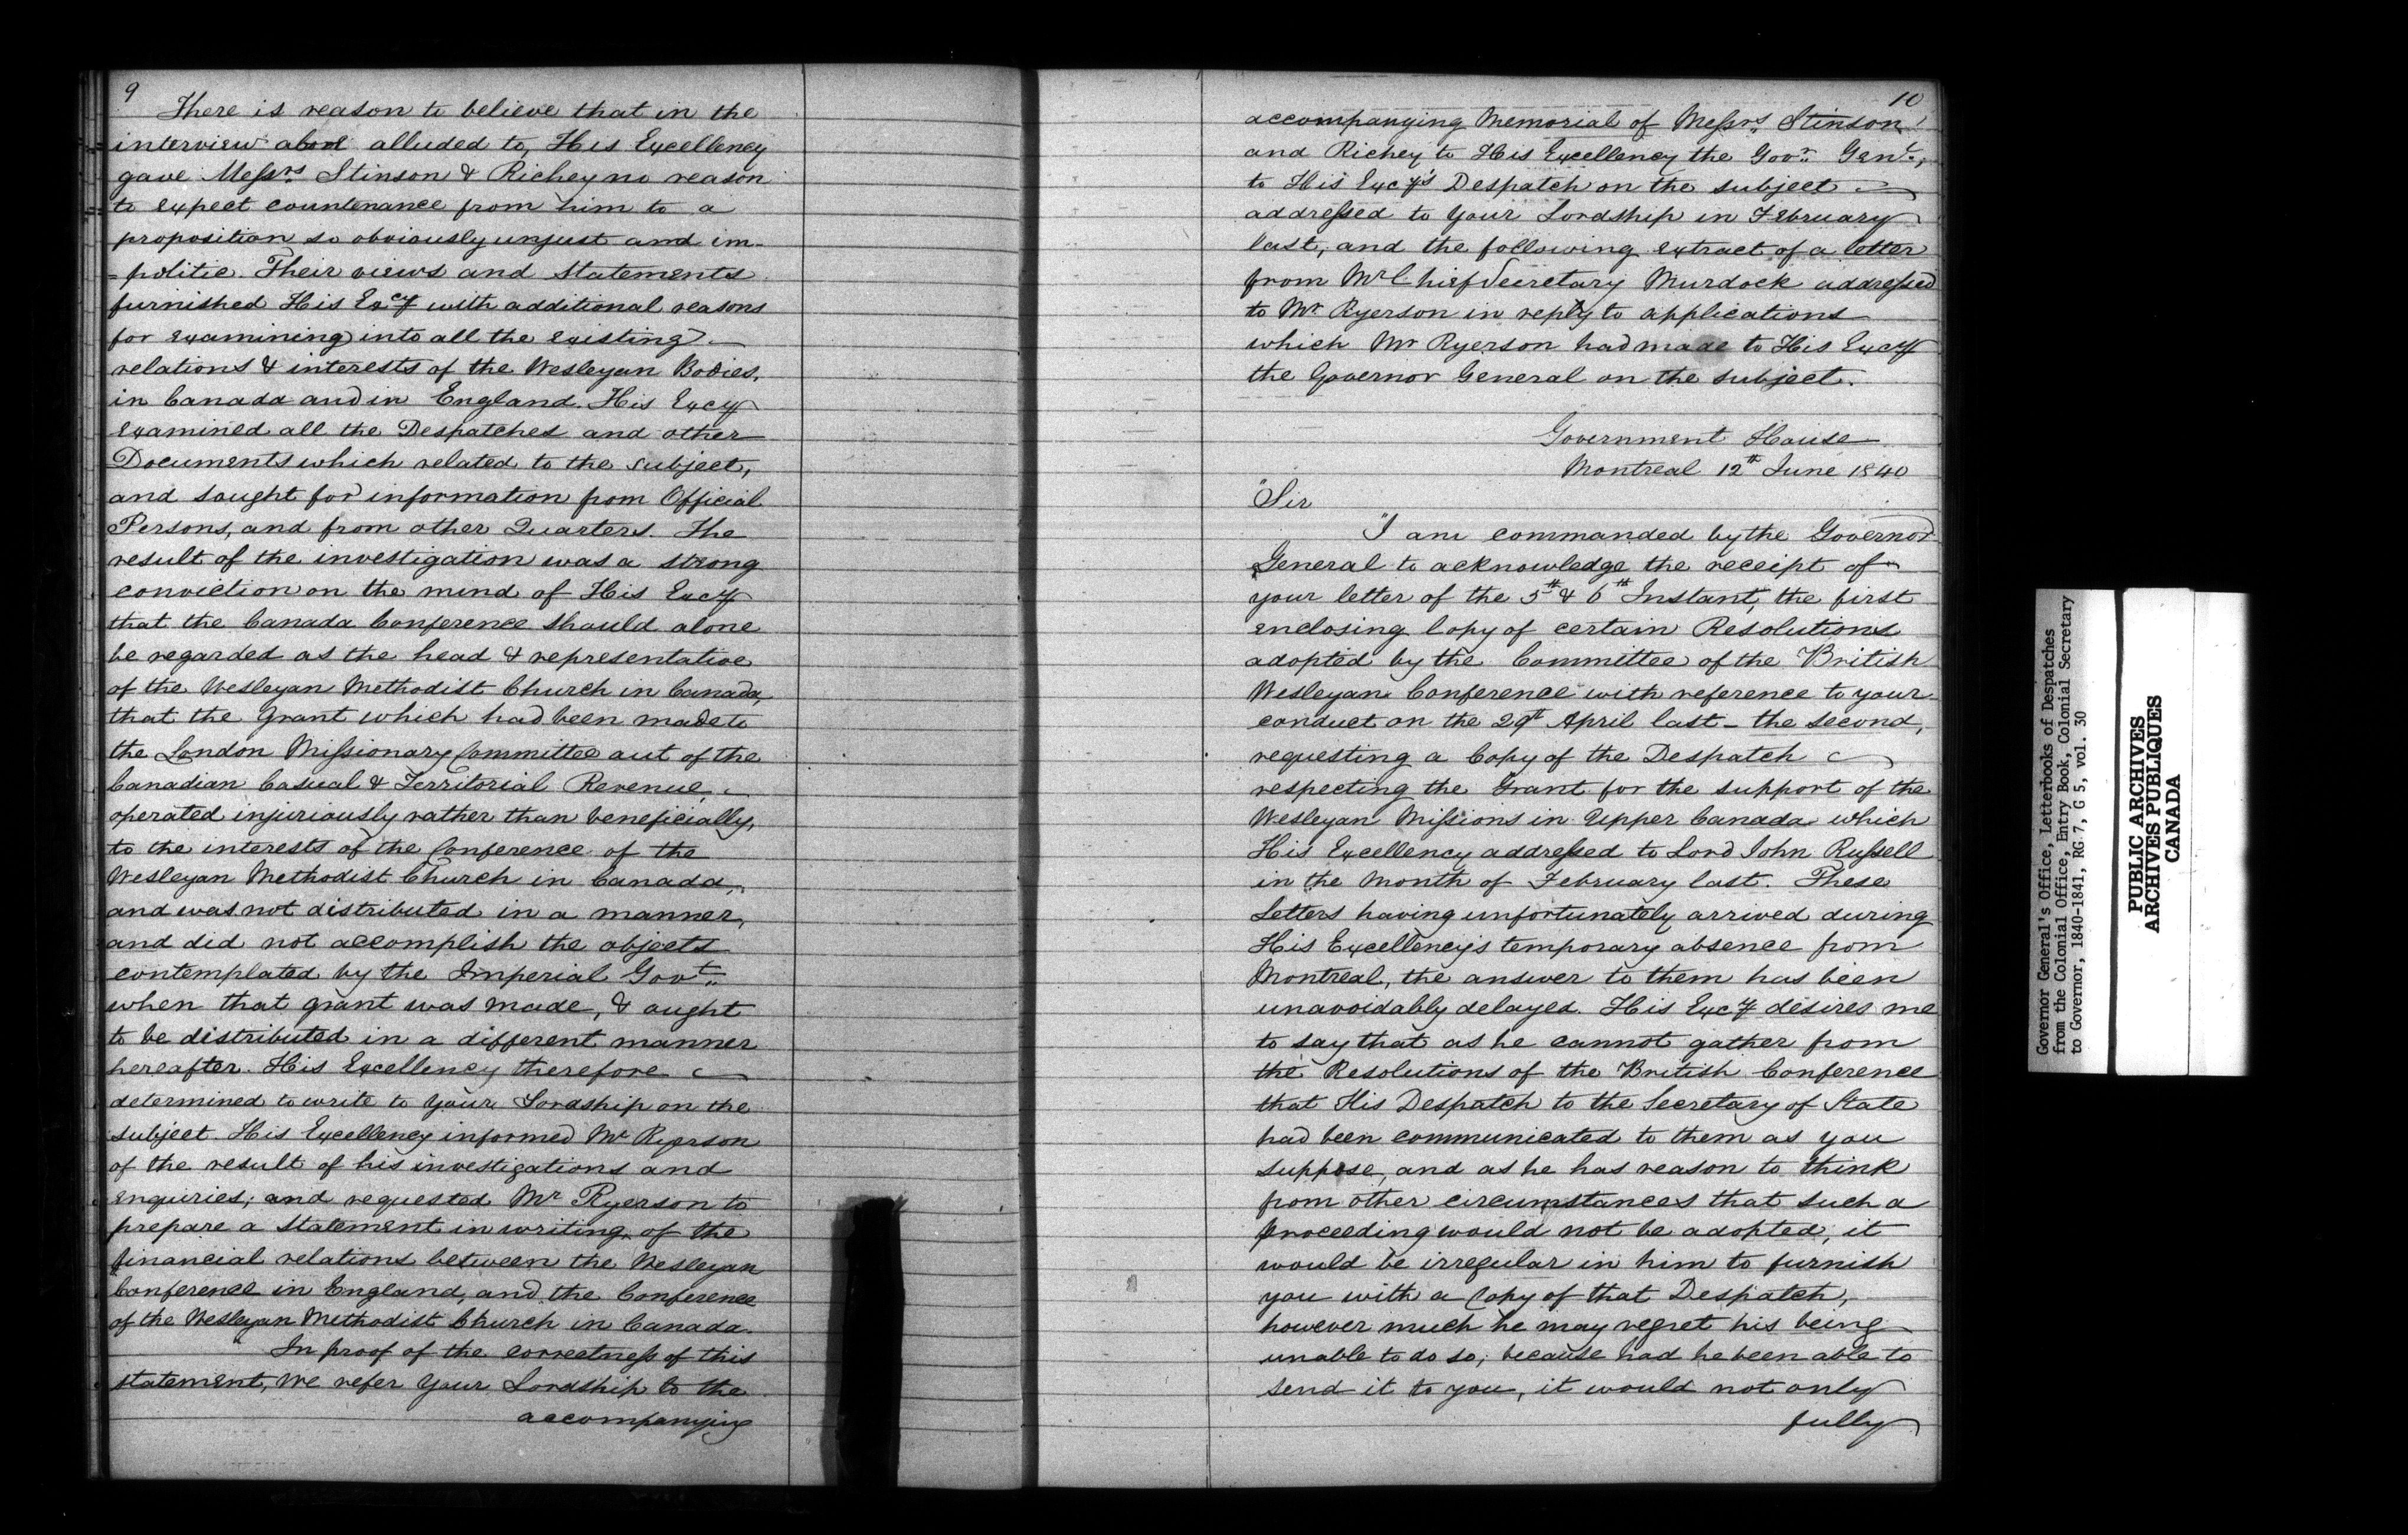 9
There is reason to believe that in the
interview above alluded to, His Excellency
gave Messrs Stinson & Richey no reason
to expect countenance from him to a
proposition so obviously unjust and im-
=politic. Their views and Statements
furnished His Excy with additional reasons
for examining into all the existing
relations & interests of the Wesleyan Bodies,
in Canada and in England. His Excy
examined all the Despatches and other
Documents which related to the subject,
and sought for information from Official
Persons, and from other Quarters. The
result of the investigation was a strong
conviction on the mind of His Excy
that the Canada Conference should alone
be regarded as the head & representative
of the Wesleyan Methodist Church in Canada,
that the Grant which had been made to
the London Missionary Committee out of the
Canadian Casual & Territorial Revenue,
operated injuriously rather than beneficially,
to the interests of the Conference of the
Wesleyan Methodist Church in Canada,
and was not distributed in a manner,
and did not accomplish the objects
contemplated by the Imperial Govt
when that grant was made, & ought
to be distributed in a different manner
hereafter. His Excellency therefore
determined to write to Your Lordship on the
subject. His Excellency informed Mr Ryerson
of the result of his investigations and
enquiries; and requested Mr Ryerson to
prepare a statement in writing of the
financial relations between the Wesleyan
Conference in England, and the Conference
of the Wesleyan Methodist Church in Canada.
In proof of the correctness of this
statement, we refer Your Lordship to the
accompanying
10
accompanying Memorial of Messrs Stinson
and Richey to His Excellency the Govr Genl,
to His Excy's Despatch on the subject
addressed to Your Lordship in February
last, and the following extract of a letter
from Mr Chief Secretary Murdock addressed
to Mr Ryerson in reply to applications
which Mr Ryerson had made to His Excy
the Governor General on the subject.
Government House
Montreal 12th June 1840
"Sir
"I am commanded by the Governor
General to acknowledge the receipt of
your letter of the 5th & 6th Instant, the first
enclosing Copy of certain Resolutions
adopted by the Committee of the British
Wesleyan Conference with reference to your
conduct on the 29th April last - the second,
requesting a Copy of the Despatch
respecting the Grant for the support of the
Wesleyan Missions in Upper Canada which
His Excellency addressed to Lord John Russell
in the Month of February last. These
Letters having unfortunately arrived during
His Excellency's temporary absence from
Montreal, the answer to them has been
unavoidably delayed. His Excy desires me
to say that as he cannot gather from
the Resolutions of the British Conference
that His Despatch to the Secretary of State
had been communicated to them as you
suppose, and as he has reason to think
from other circumstances that such a
proceeding would not be adopted, it
would be irregular in him to furnish
you with a Copy of that Despatch,
however much he may regret his being
unable to do so; because had he been able to
send it to you, it would not only
fully
Governor General's Office, Letterbooks of Despatches
from the Colonial Office, Entry Book, Colonial Secretary
to Governor, 1840-1841, RG 7, G 5, vol. 30
PUBLIC ARCHIVES
ARCHIVES PUBLIQUES
CANADA